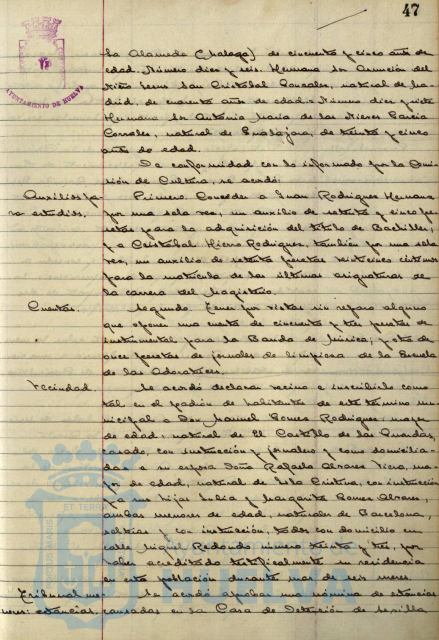 47
AYUNTAMIENTO DE HUELVA
la Alameda (Malaga) de cincuenta y cinco años de
edad. Número diez y seis. Hermana Sor Asunción del
Niño Jesus San Cristobal Gonzales, natural de Ma-
drid, de cuarenta años de edad. Número diez y siete
Hermana Sor Antonia Maria de las Nieves Garcia
Corrales, natural de Guadajara, de treinta y cinco
años de edad.
De conformidad con lo informado por la Comi-
sión de Cultura, se acordó:
Auxilios pa-
ra estudios.
Primero. Conceder a Juan Rodriguez
por una sola vez, un auxilio de setenta y cinco pe-
setas para la adquisición del titulo de Bachiller;
y a Cristóbal Hierro Rodriguez, tambien por una sola
vez, un auxilio de setenta pesetas veinticinco centimos
para la matricula de las últimas asignaturas de
la carrera del Magisterio.
Cuentas.
Segundo. Tener por vistas sin reparo alguno
que oponer una cuenta de cincuenta y tres pesetas de
instrumental para la Banda de Música; y otra de
once pesetas de jornales de limpieza de la Escuela
de las Adoratrices.
Vecindad.
Se acordó declarar vecino e inscribirlo como
tal en el padrón de habitantes de este término mu-
nicipal a Don Manuel Gomez Rodriguez; mayor
de edad; natural de El Castillo de las Guardas,
casado, con instrucción y jornalero y como domicilia-
das a su esposa Doña Rafaela Alvarez Viera, ma-
yor de edad, natural de Isla Cristina, con instrucción
y a sus hijas Julia y Margarita Gomez Alvarez,
ambas menores de edad, naturales de Barcelona,
solteras y con instrucción, todos con domicilio en
calle Miguel Redondo número treinta y tres, por
haber acreditado testificalmente su residencia
en esta población durante mas de seis meses.
Tribunal me-
nores: estancias.
Se acordó aprobar una nómina de estancias
causadas en la Casa de Detención de Sevilla